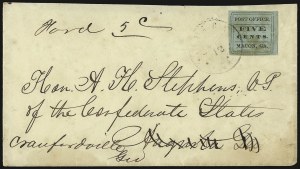 Ford 5 C
POST OFFICE
FIVE
CENTS.
MACON, GA.
Hon. A. H. Stephens, V. P.
of the Confederate States
Crawfordville Augusta Ga
Geo